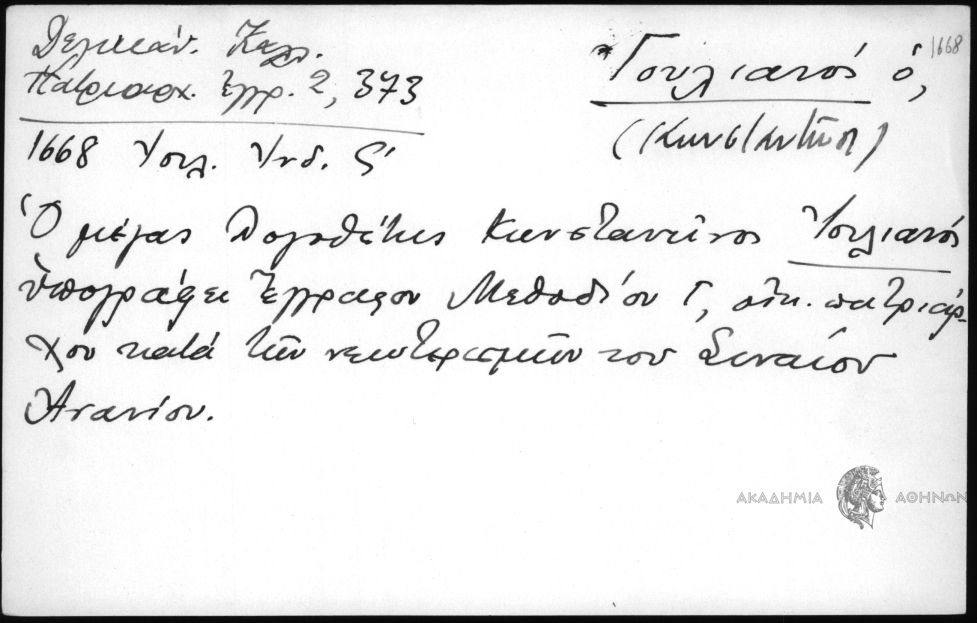 Δελικάν. Καλλ.
Πατριαρχ. Ἔγγρ. 2, 373
Ἰουλιανός ὁ,
1668
(Κωνσταντῖν)
1668 Ἰουλ. Ἰνδ. ς΄
Ὁ μέγας Λογοθέτης Κωνσταντῖνος Ἰουλιανός
ὑπογράφει ἔγγραφον Μεθοδίου Γ, οἰκ. πατριάρ-
χου κατά τῶν νεωτερισμῶν του Σιναίου
Ἀνανίου.
ΑΚΑΔΗΜΙΑ ΑΘΗΝΩΝ